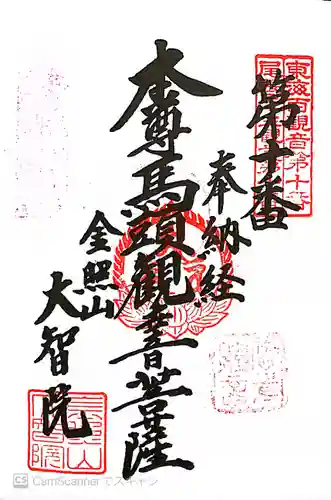 第十番
奉納経
本尊馬頭観音菩薩
金照山
大智院
東海百観音第十番
CS CamScannerでスキャン